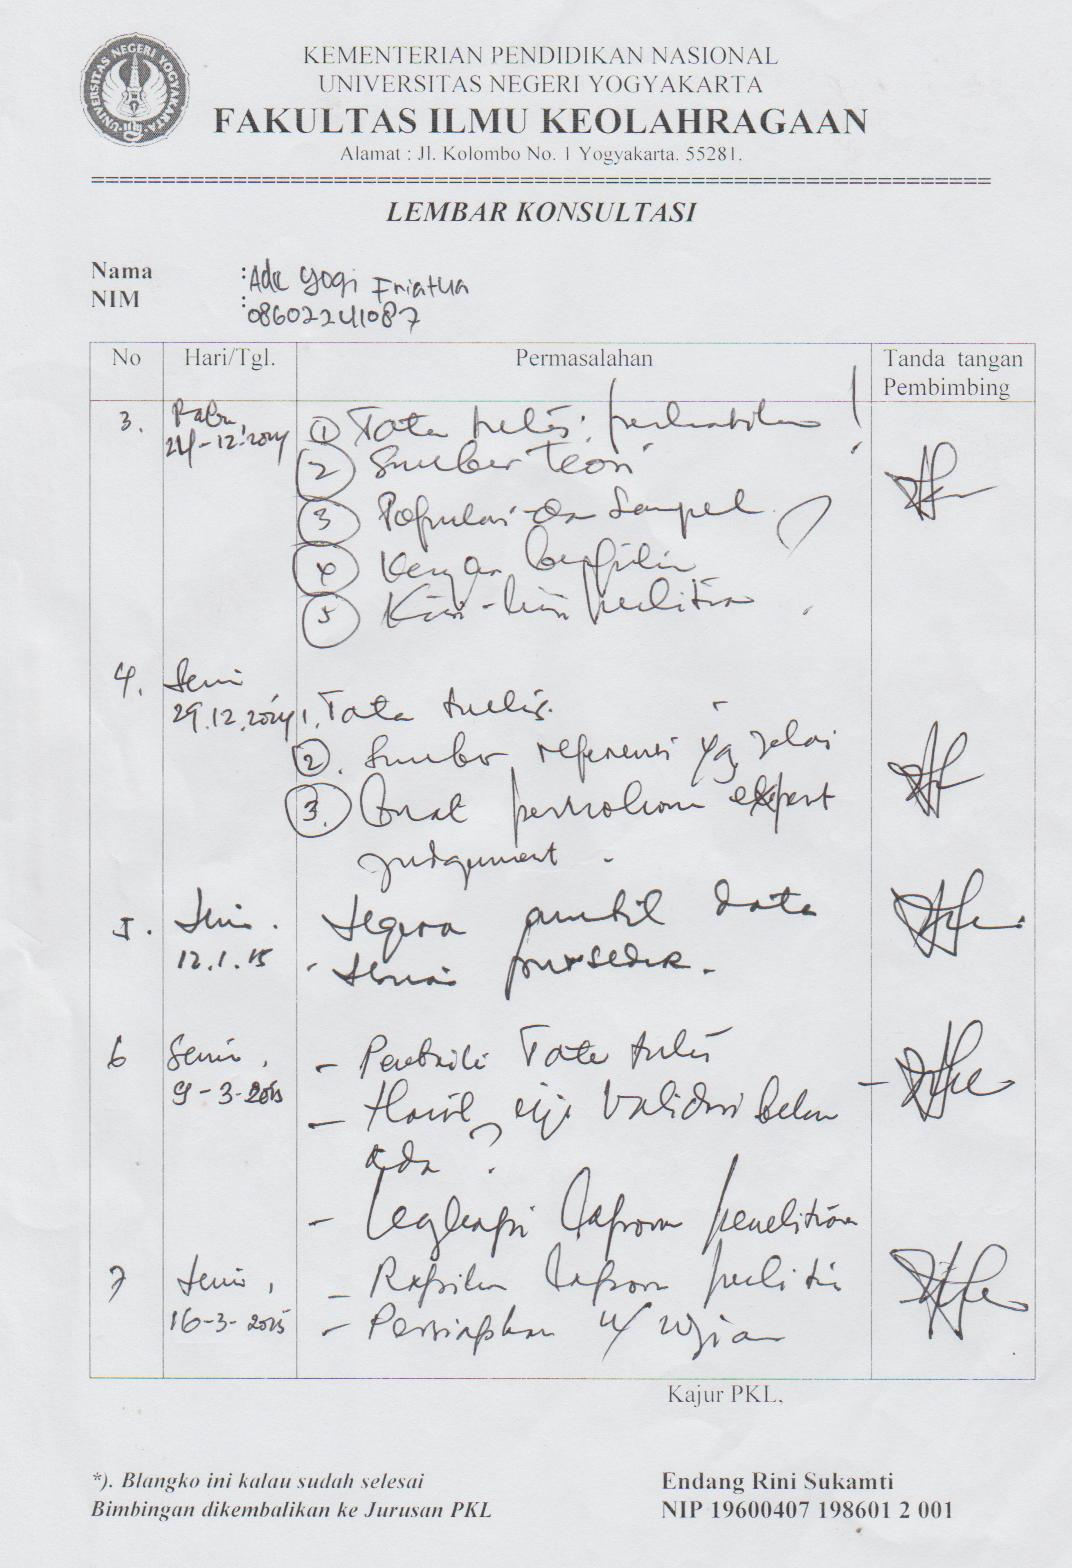 UNIVERSITAS NEGERI YOGYAKARTA
KEMENTERIAN PENDIDIKAN NASIONAL
UNIVERSITAS NEGERI YOGYAKARTA
FAKULTAS ILMU KEOLAHRAGAAN
Alamat : Jl. Kolombo No. 1 Yogyakarta. 55281.
LEMBAR KONSULTASI
Nama : Ade Yogi
NIM : 08602241087
No Hari/Tgl. Permasalahan Tanda tangan Pembimbing
3. Rabu, 24-12-2014
1 Tata tulis, !
2 Sumber teori
3 Populasi dan Sampel
4
5 Kisi-kisi
4. Senin 29.12.2014
1. Tata tulis.
2. Sumber referensi yg jelas
3. Buat permohonan expert
judgement.
5. Senin. 12.1.15
Segera ambil data
sesuai prosedur.
6 Senin, 9-3-2015
- Perbaiki Tata tulis
- Hasil uji validasi belum
ada ?
- Lengkapi laporan penelitian
7 Senin, 16-3-2015
- Rapikan laporan penelitian
- Persiapkan u/ ujian
Kajur PKL,
*). Blangko ini kalau sudah selesai
Bimbingan dikembalikan ke Jurusan PKL
Endang Rini Sukamti
NIP 19600407 198601 2 001